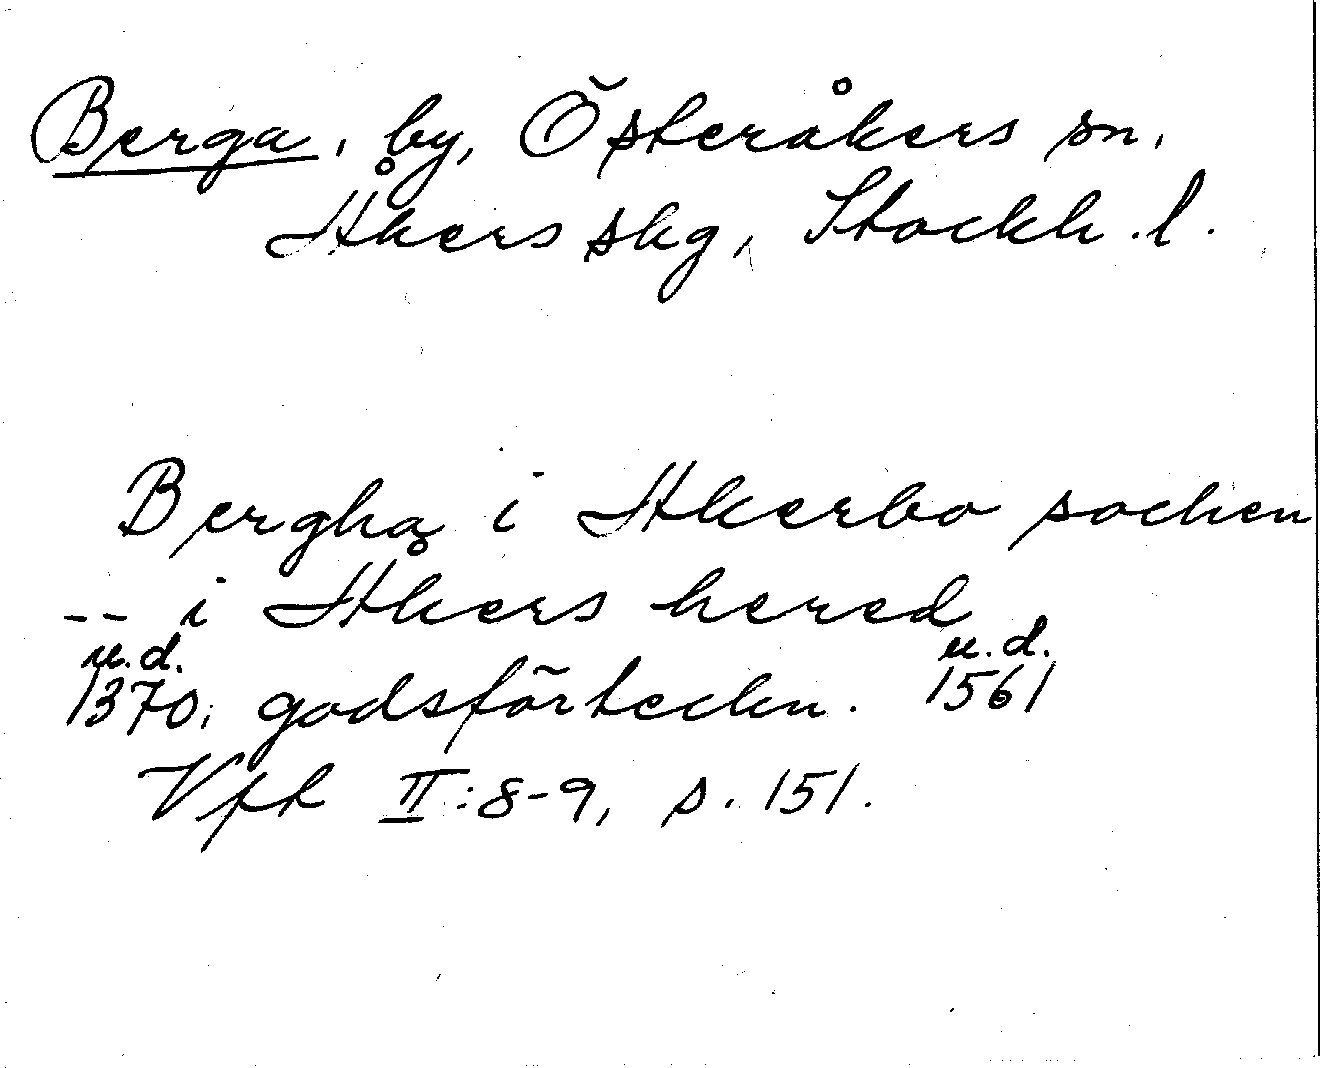 Berga, by, Österåkers sn,
Åkers skg, Stockh. l.
Bergha i Akerbo sochen
-- i Åkers hered
u.d. u.d.
1370, godsförteckn. 1561
Vpk II:8-9, s. 151.